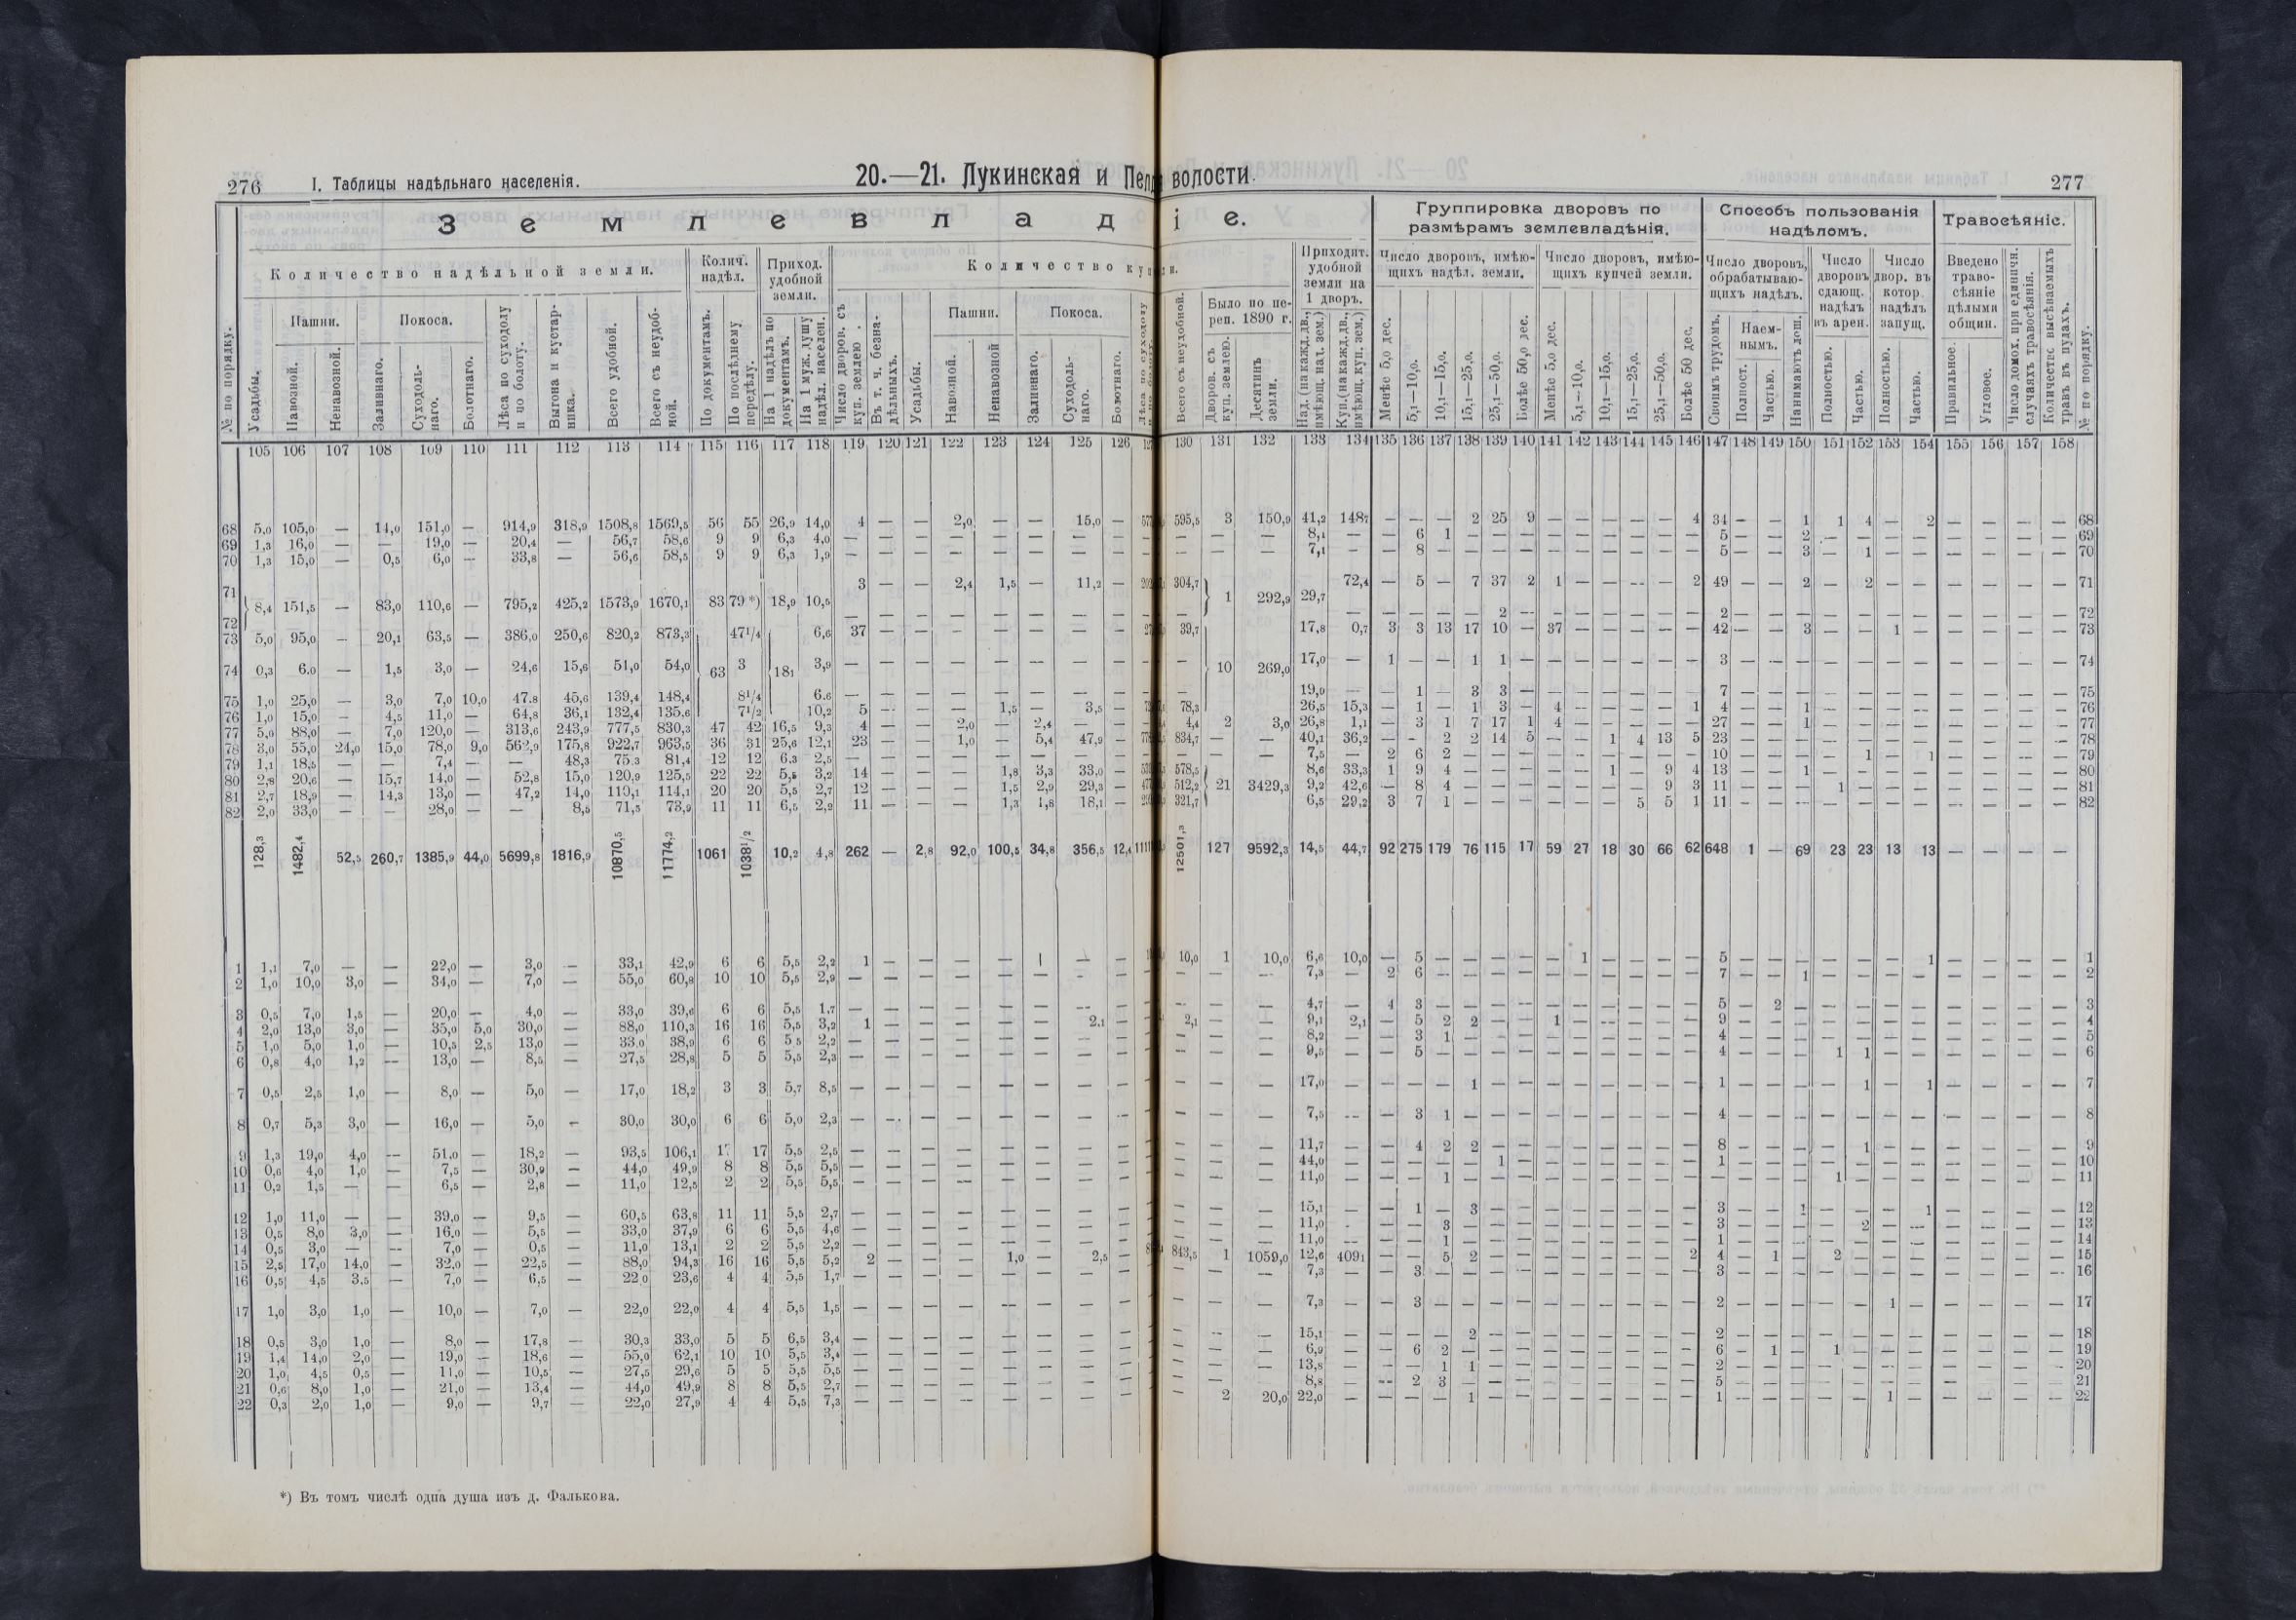 276 I. Таблицы надѣльнаго населенія.
20.—21. Лукинская и Пел
З е м л е в л а д
Количество надѣльной земли.
Колич. надѣл.
Приход. удобной земли.
Количество ку
№ по порядку.
Усадьбы.
Пашни.
Навозной.
Ненавозной.
Покоса.
Заливнаго.
Суходольнаго.
Болотнаго.
Лѣса по суходолу и по болоту.
Выгона и кустарника.
Всего удобной.
Всего съ неудобной.
По документамъ.
По послѣднему передѣлу.
На 1 надѣлъ по документамъ.
На 1 муж. душу надѣл. населен.
Число дворов. съ куп. землею.
Въ т. ч. безнадѣльныхъ.
Усадьбы.
Пашни.
Навозной.
Ненавозной
Покоса.
Заливнаго.
Суходольнаго.
Болотнаго.
105 106 107 108 109 110 111 112 113 114 115 116 117 118 119 120 121 122 123 124 125 126
68 5,0 105,0 — 14,0 151,0 — 914,9 318,9 1508,8 1569,5 56 55 26,9 14,0 4 — — 2,0 — — 15,0 —
69 1,3 16,0 — — 19,0 — 20,4 — 56,7 58,6 9 9 6,3 4,0 — — — — — — — —
70 1,3 15,0 — 0,5 6,0 — 33,8 — 56,6 58,5 9 9 6,3 1,9 — — — — — — — —
71 3 — — 2,4 1,5 — 11,2 —
8,4 151,5 — 83,0 110,6 — 795,2 425,2 1573,9 1670,1 83 79 *) 18,9 10,5
72 — — — — — — — —
73 5,0 95,0 — 20,1 63,5 — 386,0 250,6 820,2 873,3 47¹/4 6,6 37 — — — — — — —
74 0,3 6,0 — 1,5 3,0 — 24,6 15,6 51,0 54,0 63 3 18₁ 3,9 — — — — — — — —
75 1,0 25,0 — 3,0 7,0 10,0 47,8 45,6 139,4 148,4 8¹/4 6,6 — — — — — — — —
76 1,0 15,0 — 4,5 11,0 — 64,8 36,1 132,4 135,6 7¹/2 10,2 5 — — — 1,5 — 3,5 —
77 5,0 88,0 — 7,0 120,0 — 313,6 243,9 777,5 830,3 47 42 16,5 9,3 4 — — 2,0 — 2,4 — —
78 3,0 55,0 24,0 15,0 78,0 9,0 562,9 175,8 922,7 963,5 36 31 25,6 12,1 23 — — 1,0 — 5,4 47,9 —
79 1,1 18,5 — — 7,4 — — 48,3 75,3 81,4 12 12 6,3 2,5 — — — — — — — —
80 2,8 20,6 — 15,7 14,0 — 52,8 15,0 120,9 125,5 22 22 5,5 3,2 14 — — — 1,8 3,3 33,0 —
81 2,7 18,9 — 14,3 13,0 — 47,2 14,0 110,1 114,1 20 20 5,5 2,7 12 — — — 1,5 2,9 29,3 —
82 2,0 33,0 — — 28,0 — — 8,5 71,5 73,9 11 11 6,5 2,2 11 — — — 1,3 1,8 18,1 —
128,3 1482,4 52,5 260,7 1385,9 44,0 5699,8 1816,9 10870,5 11774,2 1061 1038¹/2 10,2 4,8 262 — 2,8 92,0 100,5 34,8 356,5 12,4
1 1,1 7,0 — — 22,0 — 3,0 — 33,1 42,9 6 6 5,5 2,2 1 — — — — — —
2 1,0 10,0 3,0 — 34,0 — 7,0 — 55,0 60,8 10 10 5,5 2,9 — — — — — — — —
3 0,5 7,0 1,5 — 20,0 — 4,0 — 33,0 39,6 6 6 5,5 1,7 — — — — — — — —
4 2,0 13,0 3,0 — 35,0 5,0 30,0 — 88,0 110,3 16 16 5,5 3,2 1 — — — — — 2,1 —
5 1,0 5,0 1,0 — 10,5 2,5 13,0 — 33,0 38,9 6 6 5,5 2,2 — — — — — — — —
6 0,8 4,0 1,2 — 13,0 — 8,5 — 27,5 28,8 5 5 5,5 2,3 — — — — — — — —
7 0,5 2,5 1,0 — 8,0 — 5,0 — 17,0 18,2 3 3 5,7 8,5 — — — — — — — —
8 0,7 5,3 3,0 — 16,0 — 5,0 — 30,0 30,0 6 6 5,0 2,3 — — — — — — — —
9 1,3 19,0 4,0 — 51,0 — 18,2 — 93,5 106,1 17 17 5,5 2,5 — — — — — — — —
10 0,6 4,0 1,0 — 7,5 — 30,9 — 44,0 49,9 8 8 5,5 5,5 — — — — — — — —
11 0,2 1,5 — — 6,5 — 2,8 — 11,0 12,5 2 2 5,5 5,5 — — — — — — — —
12 1,0 11,0 — — 39,0 — 9,5 — 60,5 63,8 11 11 5,5 2,7 — — — — — — — —
13 0,5 8,0 3,0 — 16,0 — 5,5 — 33,0 37,9 6 6 5,5 4,6 — — — — — — — —
14 0,5 3,0 — — 7,0 — 0,5 — 11,0 13,1 2 2 5,5 2,2 — — — — — — — —
15 2,5 17,0 14,0 — 32,0 — 22,5 — 88,0 94,3 16 16 5,5 5,2 2 — — — 1,0 — 2,5 —
16 0,5 4,5 3,5 — 7,0 — 6,5 — 22,0 23,6 4 4 5,5 1,7 — — — — — — — —
17 1,0 3,0 1,0 — 10,0 — 7,0 — 22,0 22,0 4 4 5,5 1,5 — — — — — — — —
18 0,5 3,0 1,0 — 8,0 — 17,8 — 30,3 33,0 5 5 6,5 3,4 — — — — — — — —
19 1,4 14,0 2,0 — 19,0 — 18,6 — 55,0 62,1 10 10 5,5 3,4 — — — — — — — —
20 1,0 4,5 0,5 — 11,0 — 10,5 — 27,5 29,6 5 5 5,5 5,5 — — — — — — — —
21 0,6 8,0 1,0 — 21,0 — 13,4 — 44,0 49,9 8 8 5,5 2,7 — — — — — — — —
22 0,3 2,0 1,0 — 9,0 — 9,7 — 22,0 27,9 4 4 5,5 7,3 — — — — — — — —
*) Въ томъ числѣ одна душа изъ д. Фалькова.
волости.
277
і е.
Группировка дворовъ по размѣрамъ землевладѣнія.
Способъ пользованія надѣломъ.
Травосѣяніе.
Всего съ неудобной.
Было по переп. 1890 г.
Дворов. съ куп. землею.
Десятинъ земли.
Приходит. удобной земли на 1 дворъ.
Над. (на кажд. дв., имѣющ. над. зем.)
Куп. (на кажд. дв., имѣющ. куп. зем.)
Число дворовъ, имѣющихъ надѣл. земли.
Менѣе 5,0 дес.
5,1—10,0.
10,1—15,0.
15,1—25,0.
25,1—50,0.
Болѣе 50,0 дес.
Число дворовъ, имѣющихъ купчей земли.
Менѣе 5,0 дес.
5,1—10,0.
10,1—15,0.
15,1—25,0.
25,1—50,0.
Болѣе 50 дес.
Число дворовъ, обрабатывающихъ надѣлъ.
Своимъ трудомъ.
Наемнымъ.
Полност.
Частью.
Нанимаютъ лош.
Число дворовъ сдающ. надѣлъ въ арен.
Полностью.
Частью.
Число двор. въ котор. надѣлъ запущ.
Полностью.
Частью.
Введено травосѣяніе цѣлыми общин.
Правильное.
Угловое.
Число домох. при единичн. случаяхъ травосѣянія.
Количество высѣваемыхъ травъ въ пудахъ.
№ по порядку.
130 131 132 133 134 135 136 137 138 139 140 141 142 143 144 145 146 147 148 149 150 151 152 153 154 155 156 157 158
595,5 3 150,9 41,2 148₇ — — — 2 25 9 — — — — — 4 34 — — 1 1 4 — 2 — — — — 68
— — — 8,1 — — 6 1 — — — — — — — — — 5 — — 2 — — — — — — — — 69
— — — 7,1 — — 8 — — — — — — — — — — 5 — — 3 — 1 — — — — — — 70
304,7 72,4 — 5 — 7 37 2 1 — — — — 2 49 — — 2 — 2 — — — — — — 71
1 292,9 29,7
— — — — — — 2 — — — — — — — 2 — — — — — — — — — — — 72
39,7 17,8 0,7 3 3 13 17 10 — 37 — — — — — 42 — — 3 — — 1 — — — — — 73
— 10 269,0 17,0 — 1 — — 1 1 — — — — — — — 3 — — — — — — — — — — — 74
— 19,9 — — 1 — 3 3 — — — — — — — 7 — — — — — — — — — — — 75
78,3 26,5 15,3 — 1 — 1 3 — 4 — — — — 1 4 — — 1 — — — — — — — — 76
4,4 2 3,0 26,8 1,1 — 3 1 7 17 1 4 — — — — — 27 — — 1 — — — — — — — — 77
834,7 — — 40,1 36,2 — — 2 2 14 5 — — 1 4 13 5 23 — — — — — — — — — — — 78
— — — 7,5 — 2 6 2 — — — — — — — — — 10 — — — — 1 — 1 — — — — 79
578,5 8,6 33,3 1 9 4 — — — — — 1 — 9 4 13 — — 1 — — — — — — — — 80
512,2 21 3429,3 9,2 42,6 — 8 4 — — — — — — — 9 3 11 — — — 1 — — — — — — — 81
321,7 6,5 29,2 3 7 1 — — — — — — 5 5 1 11 — — — — — — — — — — — 82
12501,3 127 9592,3 14,5 44,7 92 275 179 76 115 17 59 27 18 30 66 62 648 1 — 69 23 23 13 13 — — — —
10,0 1 10,0 6,6 10,0 — 5 — — — — — 1 — — — — 5 — — — — — — 1 — — — — 1
— — — 7,3 — 2 6 — — — — — — — — — — 7 — — 1 — — — — — — — — 2
— — — 4,7 — 4 3 — — — — — — — — — — 5 — 2 — — — — — — — — — 3
2,1 — — 9,1 2,1 — 5 2 2 — — 1 — — — — — 9 — — — — — — — — — — — 4
— — — 8,2 — — 3 1 — — — — — — — — — 4 — — — — — — — — — — — 5
— — — 9,5 — — 5 — — — — — — — — — — 4 — — — 1 1 — — — — — — 6
— — — 17,0 — — — — 1 — — — — — — — — 1 — — — — 1 — 1 — — — — 7
— — — 7,5 — — 3 1 — — — — — — — — — 4 — — — — — — — — — — — 8
— — — 11,7 — — 4 2 2 — — — — — — — — 8 — — — — 1 — — — — — — 9
— — — 44,0 — — — — — 1 — — — — — — — 1 — — — — — — — — — — — 10
— — — 11,0 — — — 1 — — — — — — — — — — — — — 1 — — — — — — — 11
— — — 15,1 — — 1 — 3 — — — — — — — — 3 — — 1 — — — 1 — — — — 12
— — — 11,0 — — — 3 — — — — — — — — — 3 — — — — 2 — — — — — — 13
— — — 11,0 — — — 1 — — — — — — — — — 1 — — — — — — — — — — — 14
843,5 1 1059,0 12,6 409₁ — — 5 2 — — — — — — — 2 4 — 1 — 2 — — — — — — — 15
— — — 7,3 — — 3 — — — — — — — — — — 3 — — — — — — — — — — — 16
— — — 7,3 — — 3 — — — — — — — — — — 2 — — — — — 1 — — — — — 17
— — — 15,1 — — — — 2 — — — — — — — — 2 — — — — — — — — — — — 18
— — — 6,9 — — 6 2 — — — — — — — — — 6 — 1 — 1 — — — — — — — 19
— — — 13,8 — — — 1 1 — — — — — — — — 2 — — — — — — — — — — — 20
— — — 8,8 — — 2 3 — — — — — — — — — 5 — — — — — — — — — — — 21
— 2 20,0 22,0 — — — — 1 — — — — — — — — 1 — — — — — 1 — — — — — 22